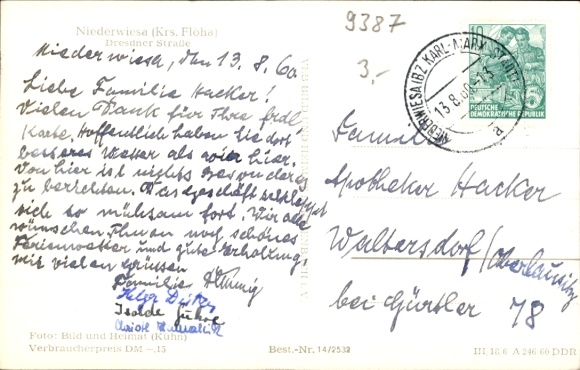 Niederwiesa (Krs. Flöha)
Dresdner Straße
9387
3,-
Niederwiesa, den 13.8.60
Liebe Familie Hacker!
Vielen Dank für Ihre frdl.
Karte. Hoffentlich haben Sie dort
besseres Wetter als wir hier.
Von hier ist nichts besonderes
zu berichten. Das Geschäft schleppt
sich so mühsam fort. Wir alle
wünschen Ihnen noch schönes
Ferienwetter und gute Erholung.
mit vielen Grüssen
Familie
Helga
Isolde
NIEDERWIESA (BZ KARL-MARX-STADT)
13.8.60-13
10
5
DEUTSCHE
DEMOKRATISCHE REPUBLIK
Famil.
Apotheker Hacker
Waltersdorf/Oberlausitz
bei Gürtler 78
Foto: Bild und Heimat (Kühn)
Verbraucherpreis DM –,15
Best.-Nr. 14/2532
III 18 6 A 246 60 DDR